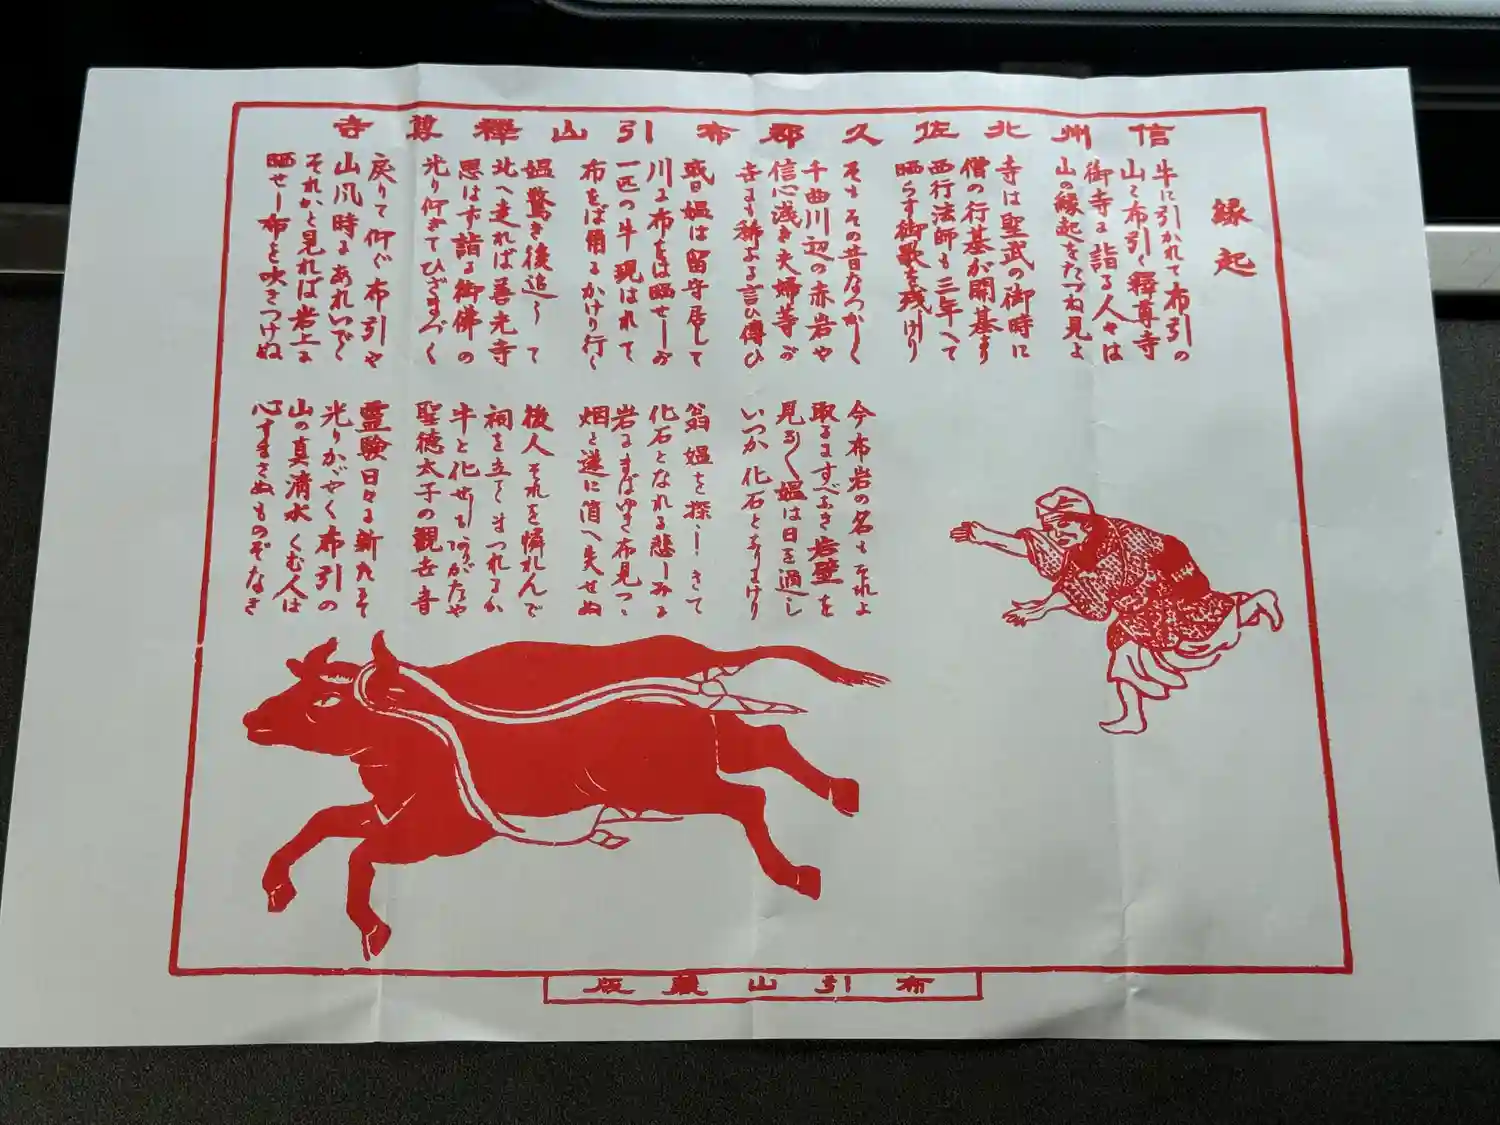 信州北佐久郡布引山釋尊寺
縁起
牛に引かれて布引の
山て布引く釋尊寺
御寺ま詣る人々は
山の縁起をたづね見よ
寺は聖武の御時に
僧の行基が開基なり
西行法師も三年へて
晒らす御歌を残けり
そもその昔なつかしく
千曲川辺の赤岩や
信心浅き夫婦等が
寺まも稀よる言ひ傳ひ
或日媼は留守居して
川に布をは晒せしが
一匹の牛現はれて
布をば角るかけり行く
媼驚き後追して
北へ走れば善光寺
思はず詣る御佛の
光り仰ぎてひざまづく
戻りて仰ぐ布引や
山風時るあれいでく
それかと見れば岩上る
晒せし布を吹きつけぬ
今布岩の名もそれよ
取るますべなき岩壁を
見ろしく媼は日を過し
いつか化石となりけり
翁媼を探しきて
化石となれる悲しみる
岩るまばゆき布見つゝ
烟と遂に消へ失せぬ
後人それを憐れんで
祠を立てまつれるか
牛と化せしありがたや
聖徳太子の観世音
霊験日々る新たるそ
光りかゞやく布引の
山の真清水くむ人は
心すまさぬものぞなき
布引山蔵版